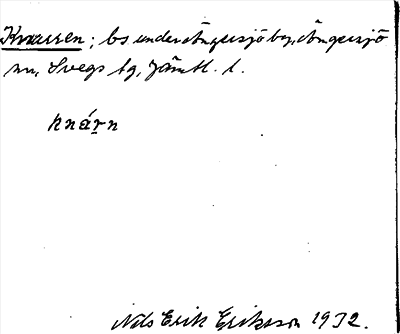 Knarren; bs under Ängersjö by, Ängersjö
sn, Svegs tg, Jämtl. l.
knárn
Nils Erik Eriksson 1932.